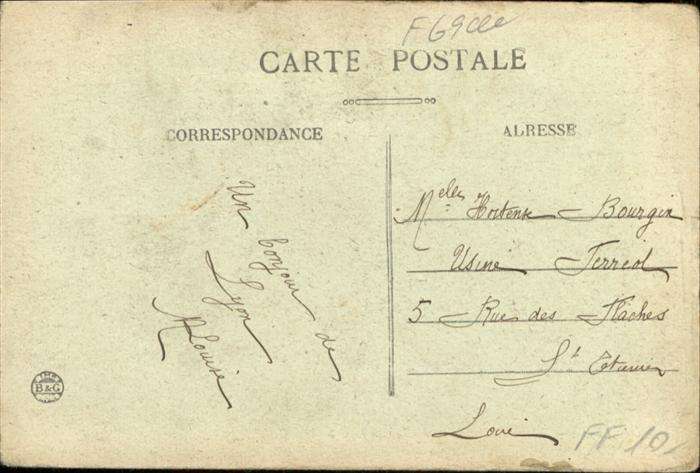 F69
CARTE POSTALE
CORRESPONDANCE
ADRESSE
Un bonjour de
Lyon
M Louise
Melle Hortense Bourgin
Usine Ferréol
5 Rue des Flaches
St Etienne
Loire
IMP
B & G
FF 10